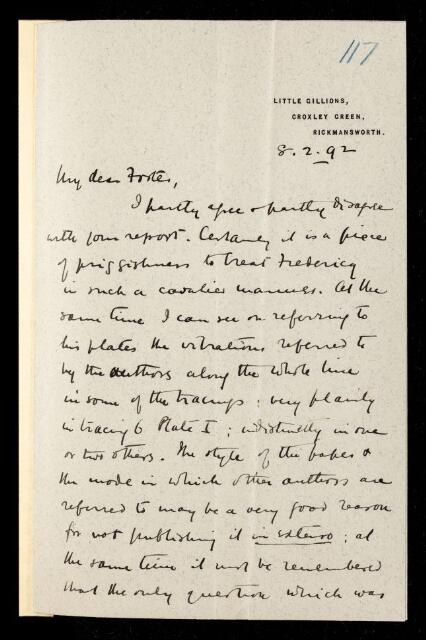 117
LITTLE GILLIONS,
CROXLEY GREEN,
RICKMANSWORTH.
8.2.92
My dear Foster,
I partly agree & partly disagree
with your report. Certainly it is a piece
of priggishness to treat Fredericq
in such a cavalier manner. At the
same time I can see on referring to
his plates the vibrations referred to
by the authors along the whole line
in some of the tracings: very plainly
in tracing 6 Plate I; indistinctly in one
or two others. The style of the paper &
the mode in which other authors are
referred to may be a very good reason
for not publishing it in extenso; at
the same time it must be remembered
that the only question which was